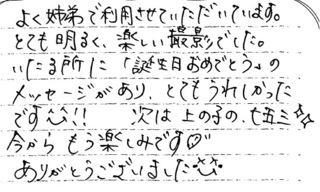 よく姉弟で利用させていただいています。
とても明るく、楽しい撮影でした。
いたる所に「誕生日おめでとう」の
メッセージがあり、とてもうれしかった
です^^!! 次は上の子の、七五三☆☆
今からもう楽しみです♡
ありがとうございました^^